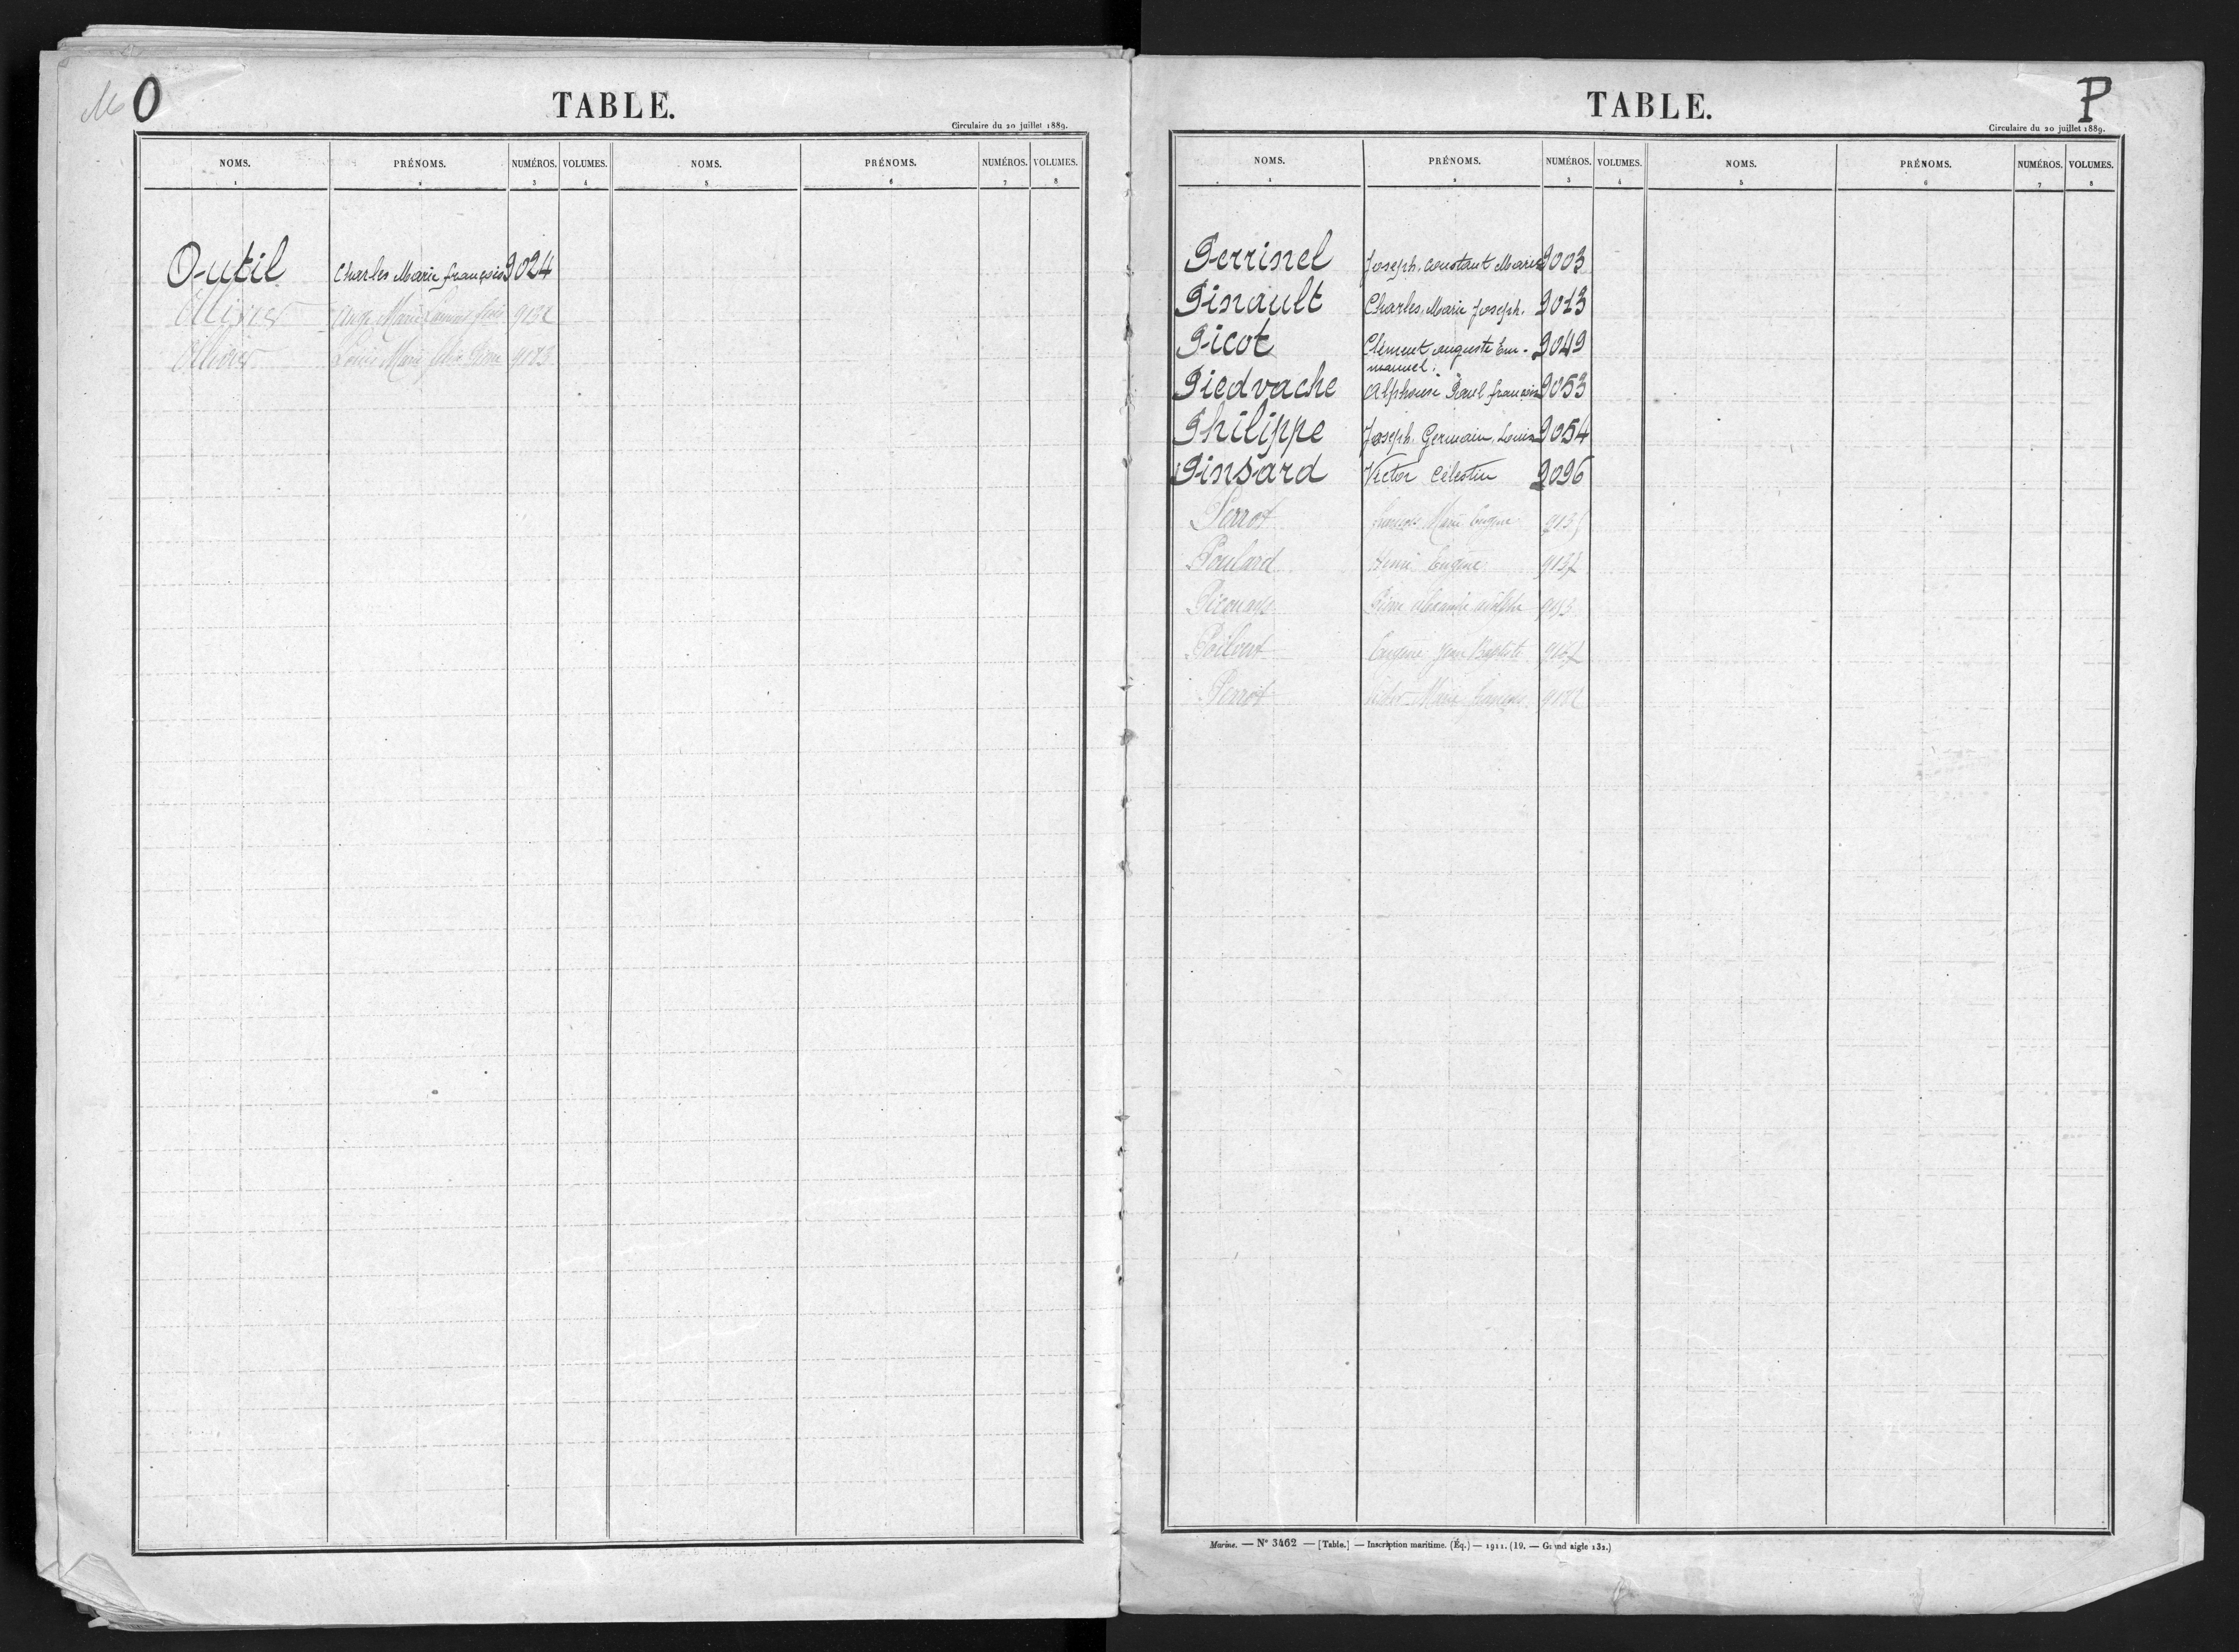 O
TABLE.
Circulaire du 20 juillet 1889.
NOMS. PRÉNOMS. NUMÉROS. VOLUMES. NOMS. PRÉNOMS. NUMÉROS. VOLUMES.
1 2 3 4 5 6 7 8
Outil Charles Marie françois 9024
Ollivier Ange Marie
Ollivier Louis Marie
P
TABLE.
Circulaire du 20 juillet 1889.
NOMS. PRÉNOMS. NUMÉROS. VOLUMES. NOMS. PRÉNOMS. NUMÉROS. VOLUMES.
1 2 3 4 5 6 7 8
Perrinel Joseph, constant Marie 9003
Pinault Charles, Marie Joseph. 9013
Picot Clément, auguste Em- 9049
manuel.
Piedvache Alphonse Paul françois 9053
Philippe Joseph, Germain, Louis 9054
Pinsard Victor Célestin 9096
Perrot François Marie Eugène
Poulard Henri Eugène 9137
Pierre Alexandre Adolphe
Poilvert Eugène Jean Baptiste
Perrot Marie François
Marine. — N° 3462 — [Table.] — Inscription maritime. (Éq.) — 1911. (19. — Grand aigle 132.)